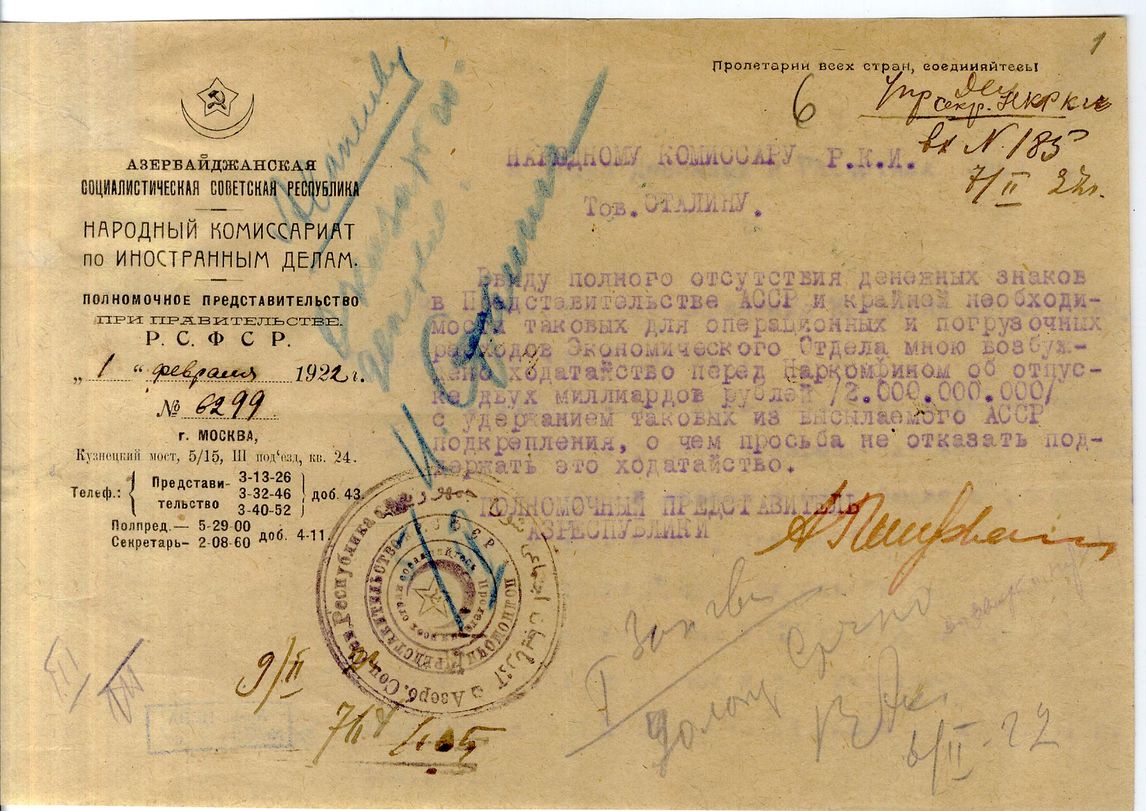 1
Пролетарии всех стран, соединяйтесь!
6
секр. НКРКИ
вх N. 185
7/II 22г.
АЗЕРБАЙДЖАНСКАЯ
СОЦИАЛИСТИЧЕСКАЯ СОВЕТСКАЯ РЕСПУБЛИКА
НАРОДНЫЙ КОМИССАРИАТ
ПО ИНОСТРАННЫМ ДЕЛАМ.
ПОЛНОМОЧНОЕ ПРЕДСТАВИТЕЛЬСТВО
ПРИ ПРАВИТЕЛЬСТВЕ.
Р. С. Ф. С. Р.
„ 1 “ февраля 1922 г.
№ 6299
г. МОСКВА,
Кузнецкий мост, 5/15, III под'езд, кв. 24.
Телеф.: Представительство 3-13-26
3-32-46 доб. 43.
3-40-52
Полпред.— 5-29-00
Секретарь- 2-08-60 доб. 4-11.
НАРОДНОМУ КОМИССАРУ Р.К.И.
Тов. СТАЛИНУ.
Ввиду полного отсутствия денежных знаков
в Представительстве АССР и крайней необходи-
мости таковых для операционных и погрузочных
расходов Экономического Отдела мною возбуж-
дено ходатайство перед Наркомфином об отпус-
ке двух миллиардов рублей /2.000.000.000/
с удержанием таковых из высылаемого АССР
подкрепления, о чем просьба не отказать под-
держать это ходатайство.
ПОЛНОМОЧНЫЙ ПРЕДСТАВИТЕЛЬ
АЗРЕСПУБЛИКИ
И. Сталин
Азерб. Соц. Сов. Республика
ПОЛНОМОЧН. ПРЕДСТАВИТЕЛЬСТВО
9/II
6/II - 22